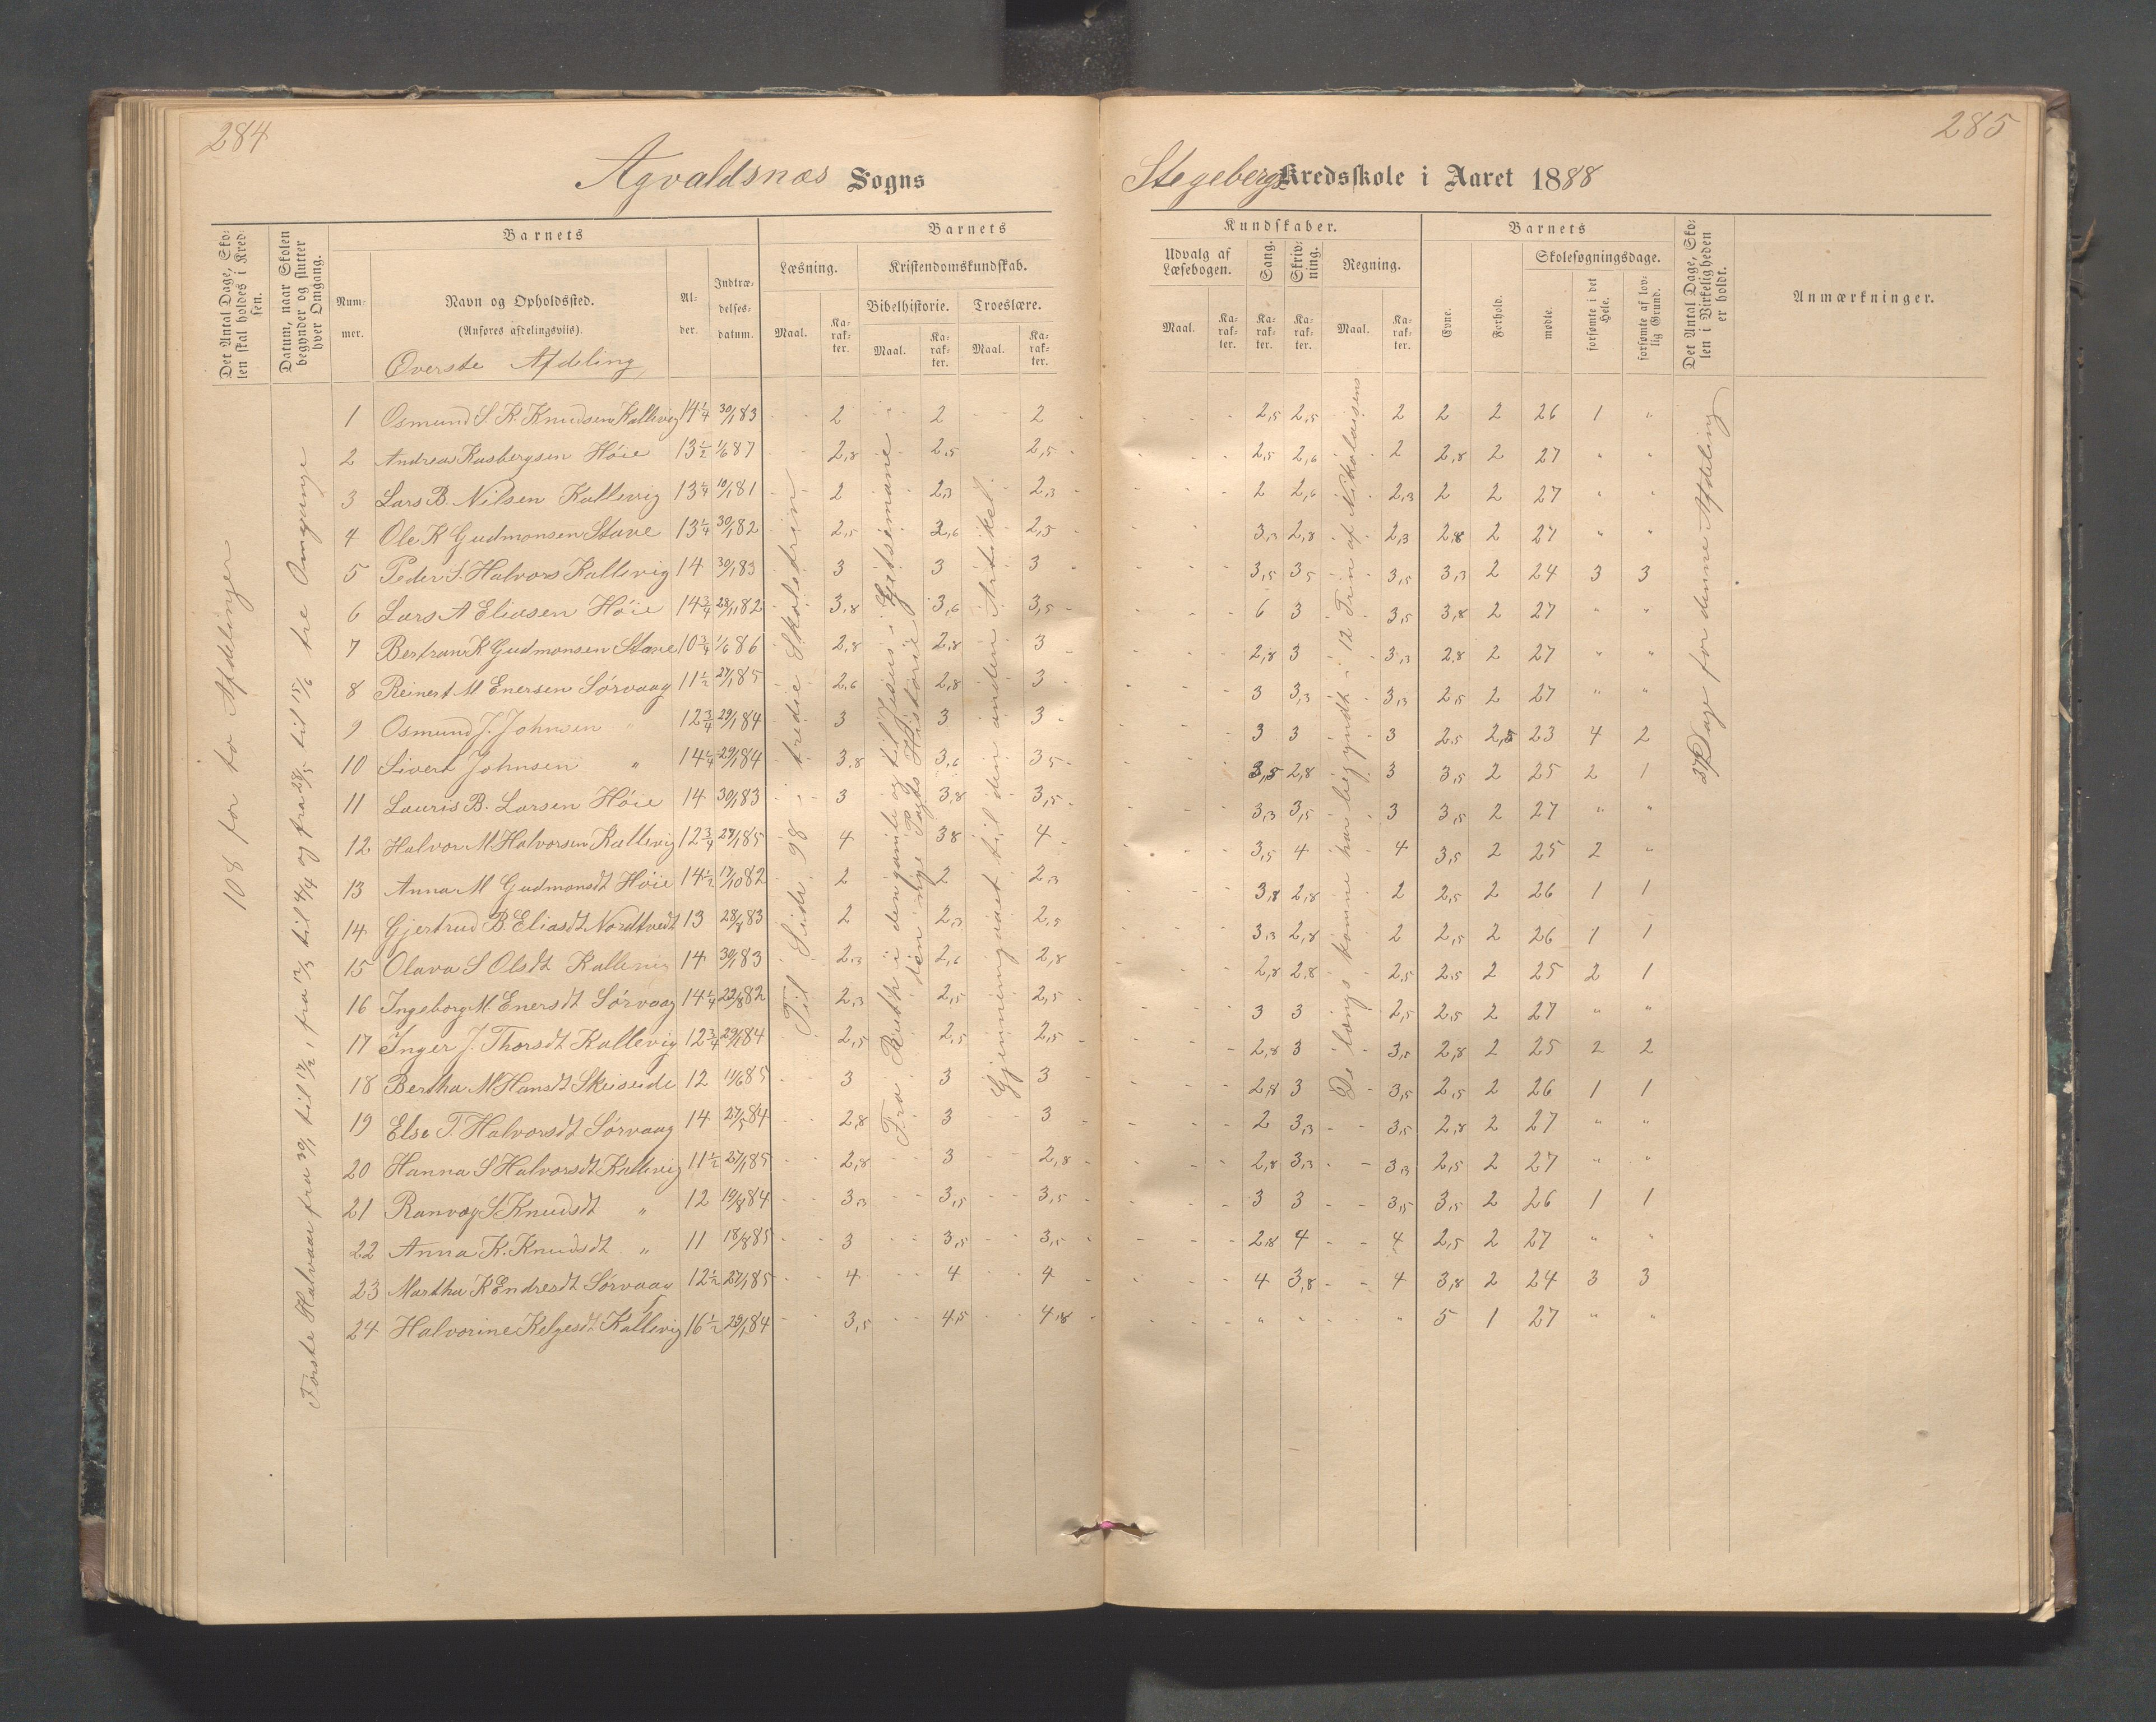 284
285
Agvaldsnæs Sogns
Stegebergs Kredsskole i Aaret 1888
Det Antal Dage, Skolen skal holdes i Kredsen.
Datum, naar Skolen begynder og slutter hver Omgang.
Barnets
Nummer.
Navn og Opholdssted.
(Anføres afdelingsviis).
Alder.
Indtrædelsesdatum.
Barnets
Læsning.
Maal.
Karakter.
Kristendomskundskab.
Bibelhistorie.
Maal.
Karakter.
Troeslære.
Maal.
Karakter.
Kundskaber.
Udvalg af Læsebogen.
Maal.
Karakter.
Sang.
Karakter.
Skrivning.
Karakter.
Regning.
Maal.
Karakter.
Barnets
Evne.
Forhold.
Skolesøgningsdage.
mødte.
forsømte i det Hele.
forsømte af lovlig Grund.
Det Antal Dage, Skolen i Virkeligheden er holdt.
Anmærkninger.
Øverste Afdeling
108 for to Afdelinger
Første Halvaar fra 30/1 til 17/2, fra 12/3 til 4/4 og fra 28/5 til 15/6 tre Omgange
Til Side 98 i tredie Skoletrin
Fra Ruth i den gamle og til Jesus i Getsemane i den nye Pagts Historie
Gjenningaaet til den anden Artikel
De længs komne har begyndt i 12 Trin af Nikolaisens
37 Dage for denne Afdeling
1 Osmund S. K. Knudsen Kallevig 14 1/4 30/1 83 2 2 2 2,5 2,5 2 2 2 26 1 "
2 Andreas Rasbergsen Höie 13 1/2 1/6 87 2,8 2,5 2,5 2,5 2,6 2 2,8 2 27 " "
3 Lars B. Nilsen Kallevig 13 1/4 10/1 81 2 2,3 2,3 2 2,6 2,3 2 2 27 " "
4 Ole K Gudmonsen Stave 13 1/4 30/1 82 2,5 2,6 2,5 3,3 2,8 2,3 2,8 2 27 " "
5 Peder S. Halvors Kallevig 14 30/1 83 3 3 3 3,5 3,5 3,5 3,3 2 24 3 3
6 Lars A Eliasen Höie 14 3/4 28/1 82 3,8 3,6 3,5 6 3 3,5 3,8 2 27 " "
7 Bertran K Gudmonsen Stave 10 3/4 1/6 86 2,8 2,8 3 2,8 3 3,3 2,8 2 27 " "
8 Reinert M Enersen Sörvaag 11 1/2 27/1 85 2,6 2,8 3 3 3,3 3,3 2,5 2 27 " "
9 Osmund J. Johnsen " 12 3/4 29/1 84 3 3 3 3 3 3 2,5 2,5 23 4 2
10 Sivert Johnsen " 14 1/4 29/1 84 3,8 3,6 3,5 3,5 2,8 3 3,5 2 25 2 1
11 Lauris B. Larsen Höie 14 30/1 83 3 3,8 3,5 3,3 3,5 3 3,5 2 27 " "
12 Halvor M Halvorsen Kallevig 12 3/4 27/1 85 4 3,8 4 3,5 4 4 3,5 2 25 2 "
13 Anna M Gudmonsdt Höie 14 1/2 17/10 82 2 2 2,3 3,8 2,8 2 2,5 2 26 1 1
14 Gjertrud B. Eliasdt Nordtvedt 13 28/8 83 2 2,3 2,5 3,3 2,8 2 2,5 2 26 1 1
15 Olava S Olsdt Kallevig 14 30/1 83 2,3 2,6 2,8 2,8 2,8 2,5 2,5 2 25 2 1
16 Ingeborg M. Enersdt Sörvaag 14 1/4 22/8 82 2,3 2,5 2,5 3 3 2,5 2,5 2 27 " "
17 Inger J. Thorsdt Kallevig 12 3/4 29/1 84 2,5 2,5 2,5 2,8 3 3,5 2,8 2 25 2 2
18 Bertha M Hansdt Skeiseide 12 11/6 85 3 3 3 2,8 3 3,5 2,5 2 26 1 1
19 Else T. Halvorsdt Sörvaag 14 27/5 84 2,8 3 3 2 3,3 3,5 2,8 2 27 " "
20 Hanna S Halvorsdt Kallevig 11 1/2 27/1 85 2,8 3 2,8 2,8 3,3 3,3 2,5 2 27 " "
21 Ranvog S Knudsdt " 12 19/8 84 3,3 3,5 3,5 3 3 3,5 3,5 2 26 1 1
22 Anna K. Knudsdt " 11 18/8 85 3 3,5 3,5 2,8 4 4 2,5 2 27 " "
23 Martha K Endresdt Sörvaag 12 1/2 27/1 85 4 4 4 4 3,8 4 3,8 2 24 3 3
24 Halvorine Helgesdt Kallevig 16 1/2 29/1 84 3,5 4,5 4,8 " " " 5 1 27 " "